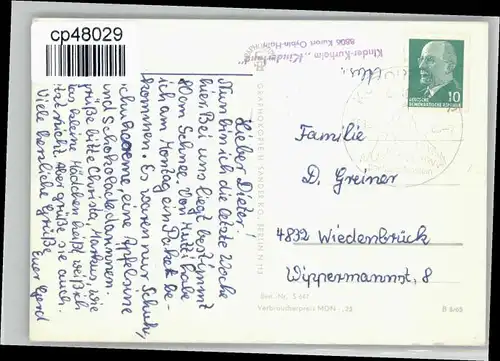 cp48029
Kinder-Kurheim „Kinderland"
8806 Kurort Oybin-Hain
DEUTSCHE
DEMOKRATISCHE REPUBLIK
10
Lieber Dieter!
Nun bin ich die letzte Woche
hier. Bei uns liegt bestimmt
80cm Schnee. Von Mutti habe
ich am Montag ein Paket be-
kommen. Es waren nur Schuh,
eine Apfelsine
und Schokolade darinnen.
grüße bitte Christa, Markus, wie
das kleine Mädchen heißt, weiß ich
nicht. Aber grüße sie auch.
Viele herzliche Grüße
Euer Gerd
GRAPHOKOPIE H. SANDER KG · BERLIN N 113
Familie
D. Greiner
4832 Wiedenbrück
Wippermannst, 8
Best.-Nr. S 661
Verbraucherpreis MDN -,25
B 6/65